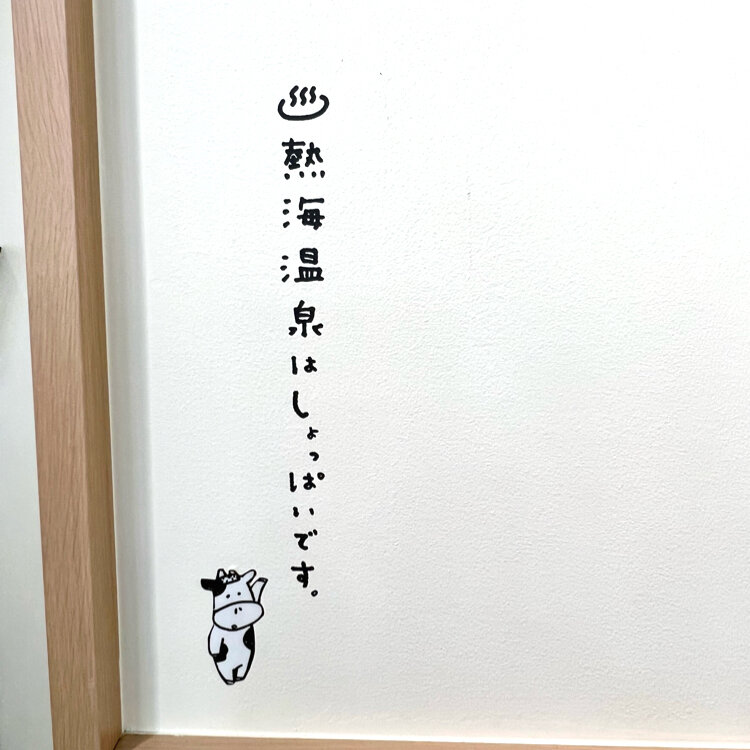 ♨熱海温泉はしょっぱいです。